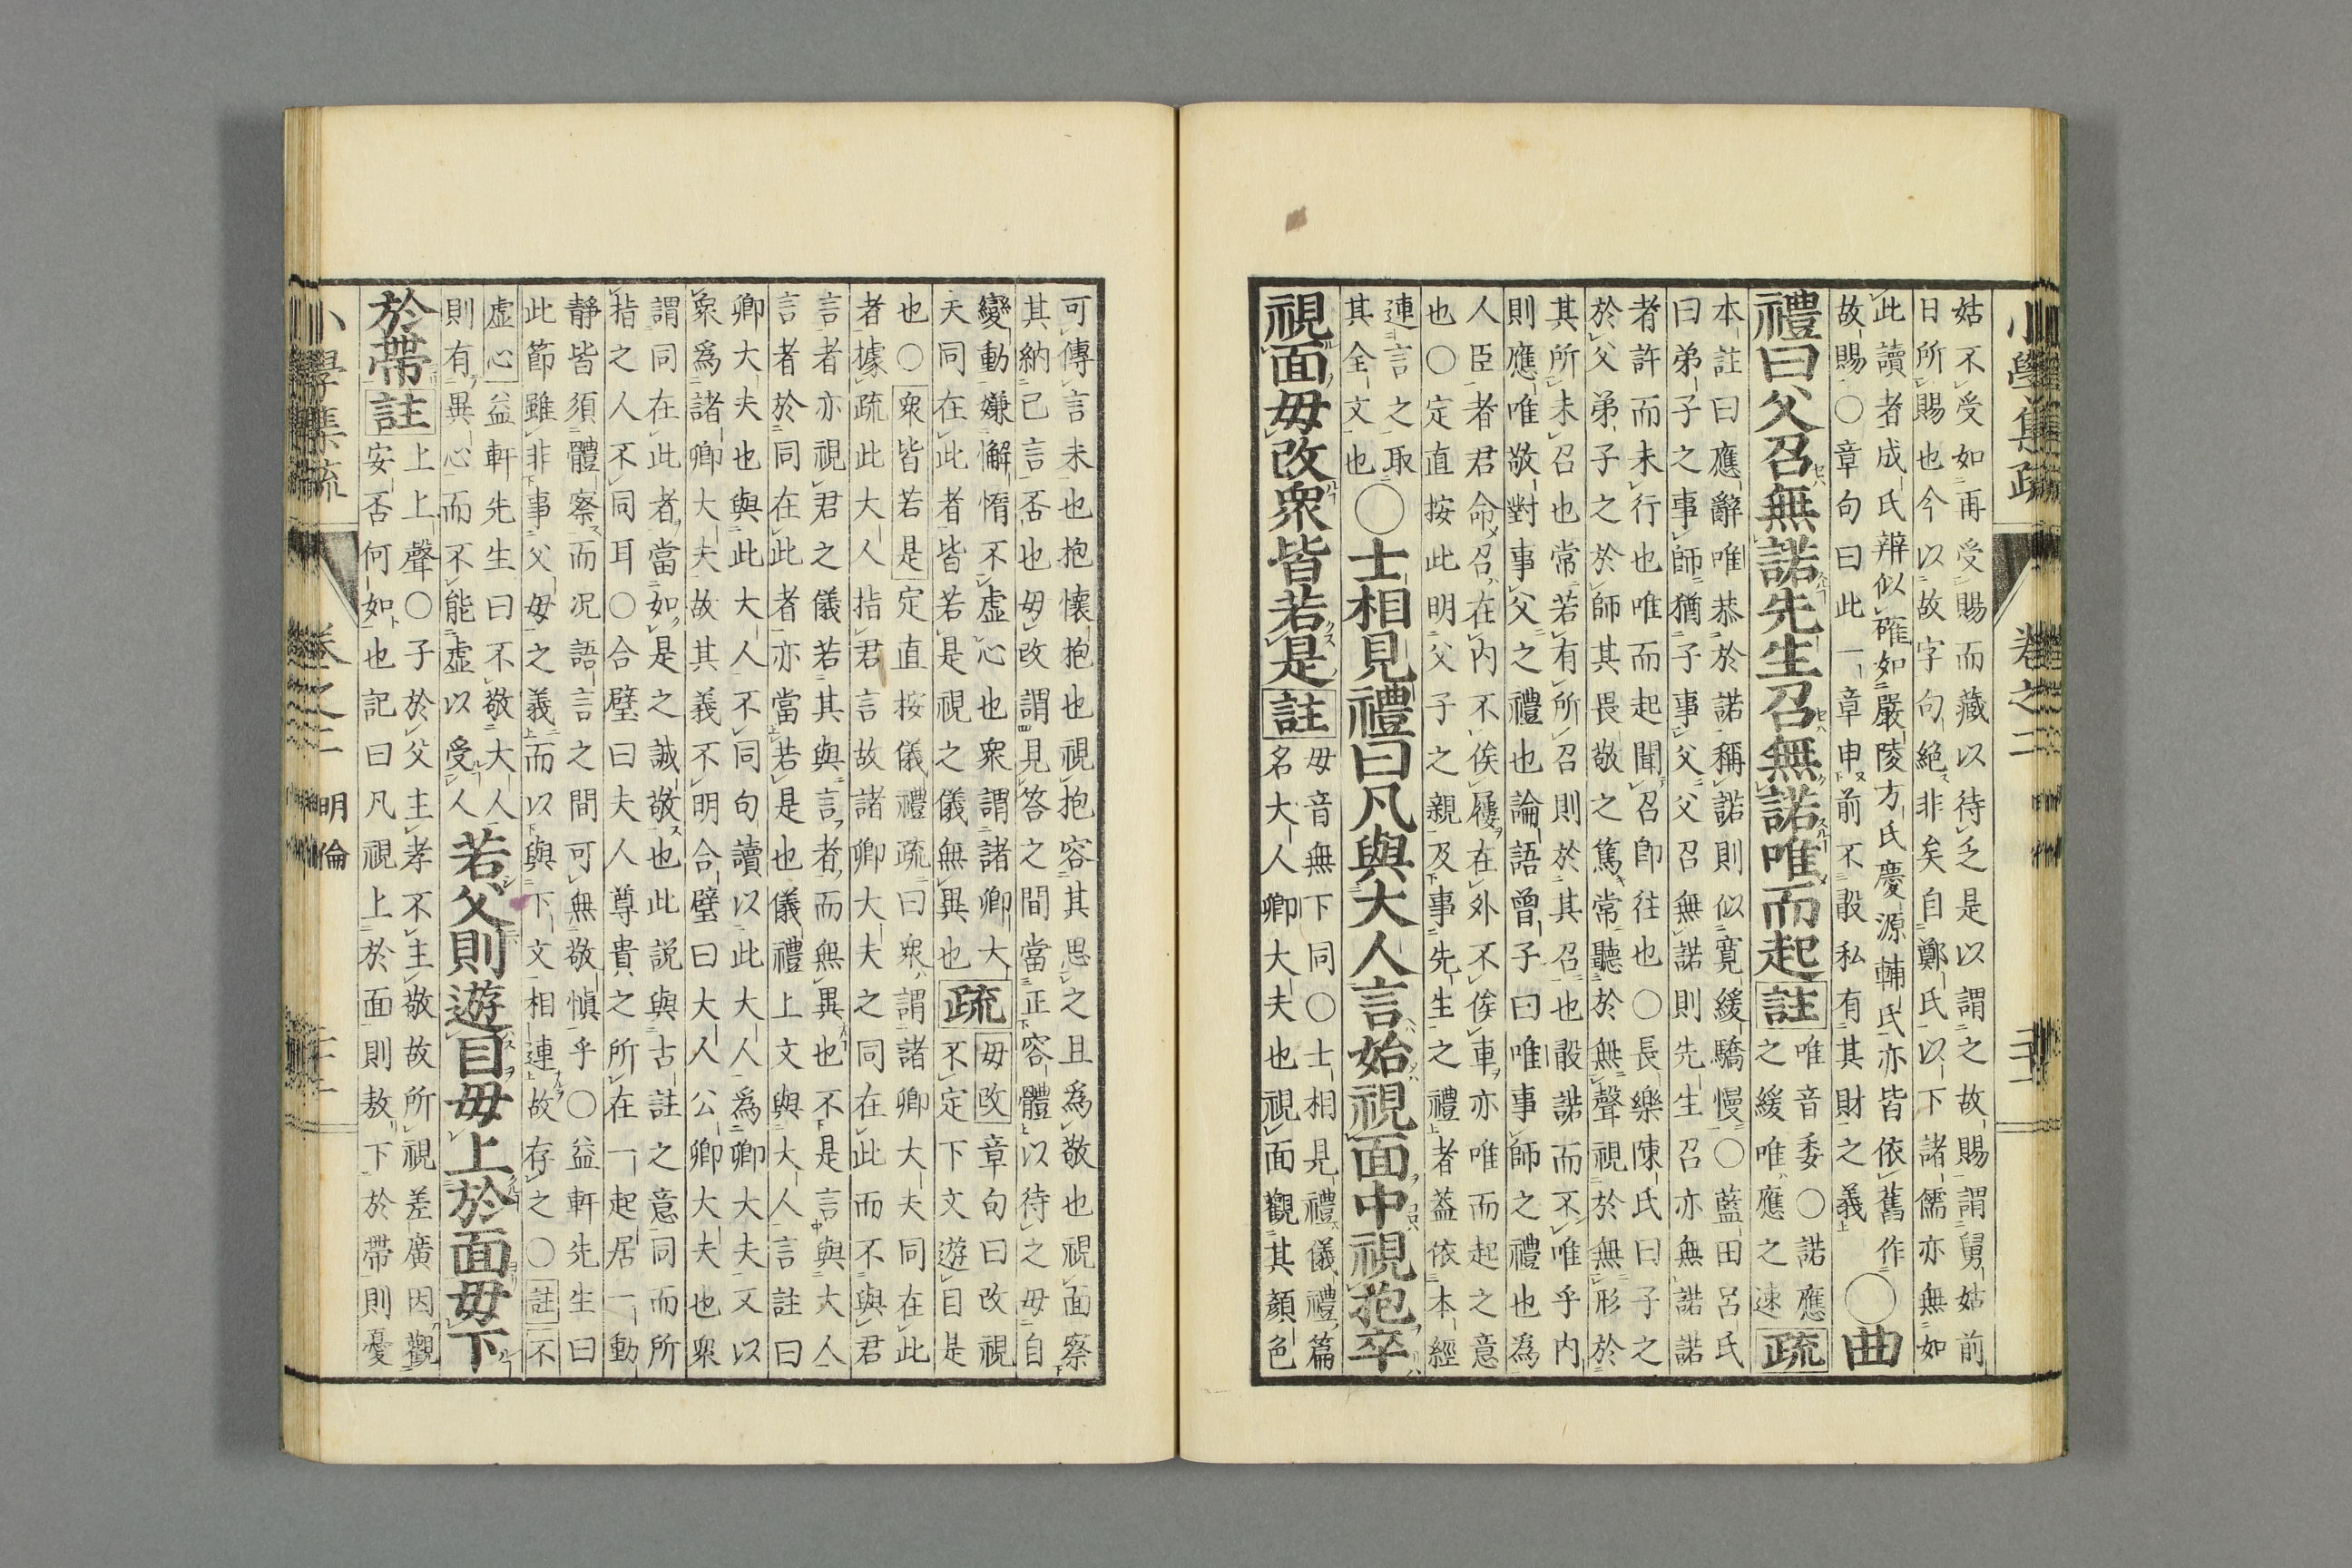 小學集疏 卷之二
姑不受如再受賜而藏以待乏是以謂之故賜謂舅姑前
日所賜也今以故字句絕非矣自鄭氏以下諸儒亦無如
此讀者成氏辨似確如嚴陵方氏慶源輔氏亦皆依舊作
故賜○章句曰此一章申前不敢私有其財之義
○曲
禮曰父召無諾先生召無諾唯而起註
唯音委○諾應
之緩唯應之速
疏
本註曰應辭唯恭於諾稱諾則似寬緩驕慢○藍田呂氏
曰弟子之事師猶子事父父召無諾則先生召亦無諾諾
者許而未行也唯而起聞召卽往也○長樂陳氏曰子之
於父弟子之於師其畏敬之篤常聽於無聲視於無形於
其所未召也常若有所召則於其召也敢諾而不唯乎内
則應唯敬對事父之禮也論語曾子曰唯事師之禮也為
人臣者君命召在内不俟屨在外不俟車亦唯而起之意
也○定直按此明父子之親及事先生之禮者蓋依本經
連言之取
其全文也
○士相見禮曰凡與大人言始視面中視抱卒
視面毋改衆皆若是註
毋音無下同○士相見禮儀禮篇
名大人卿大夫也視面觀其顏色
可傳言未也抱懷抱也視抱容其思之且為敬也視面察
其納己言否也毋改謂見答之間當正容體以待之毋自
變動嫌懈惰不虛心也衆謂諸卿大
夫同在此者皆若是視之儀無異也
疏
毋改章句曰改視
不定下文遊目是
也○衆皆若是定直按儀禮疏曰衆謂諸卿大夫同在此
者據疏此大人指君言故諸卿大夫之同在此而不與君
言者亦視君之儀若其與言者而無異也不是言與大人
言者於同在此者亦當若是也儀禮上文與大人言註曰
卿大夫也與此大人不同句讀以此大人為卿大夫又以
衆為諸卿大夫故其義不明合璧曰大人公卿大夫也衆
謂同在此者當如是之誠敬也此說與古註之意同而所
指之人不同耳○合璧曰夫人尊貴之所在一起居一動
靜皆須體察而況語言之間可無敬愼乎○益軒先生曰
此節雖非事父母之義而以與下文相連故存之○註不
虛心益軒先生曰不敬大人
則有異心而不能虛以受人
若父則遊目毋上於面毋下
於帶註
上上聲○子於父主孝不主敬故所視差廣因觀
安否何如也記曰凡視上於面則敖下於帶則憂
小學集疏 卷之二 明倫